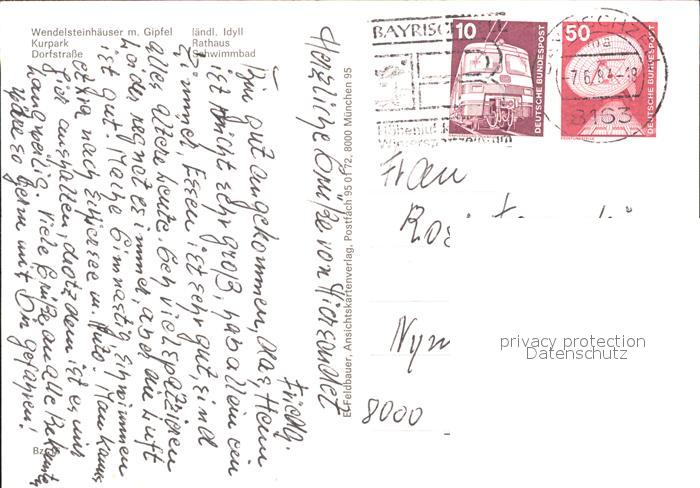 Wendelsteinhäuser m. Gipfel ländl. Idyll
Kurpark Rathaus
Dorfstraße Schwimmbad
BAYRISCH
10
DEUTSCHE BUNDESPOST
50
DEUTSCHE BUNDESPOST
7.6.84-18
8163
Höhenluft
Wintersport
Herzliche Grüße von hier sendet
Bin gut angekommen, das Heim
ist nicht sehr groß, hab allein ein
Zimmer, Essen ist sehr gut, sind
alles ältere Leute. Geh viel spazieren
leider regnet es immer, aber die Luft
ist gut. Mache Gimnastig, schwimmen
extra nach Schliersee m. Auto. Man kann
sich aushalten, trotzdem ist es mir
langweilig. Viele Grüße an alle Bekannte
wäre so gern mit Dir gefahren!
El. Feldbauer, Ansichtskartenverlag, Postfach 95 01 72, 8000 München 95
Frau
Nym
8000
privacy protection
Datenschutz